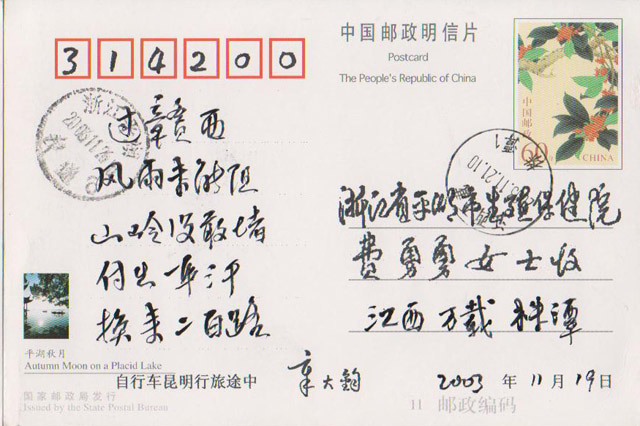 314200
中国邮政明信片
Postcard
The People's Republic of China
中国邮政
60分
CHINA
过章赣西
风雨未能阻
山岭没敢堵
付出一身汗
换来二百路
浙江省平湖市生殖保健院
费勇勇女士收
江西万载株潭
平湖秋月
Autumn Moon on a Placid Lake
自行车昆明行旅途中
章大钧
2003年11月19日
国家邮政局发行
Issued by the State Postal Bureau
11 邮政编码